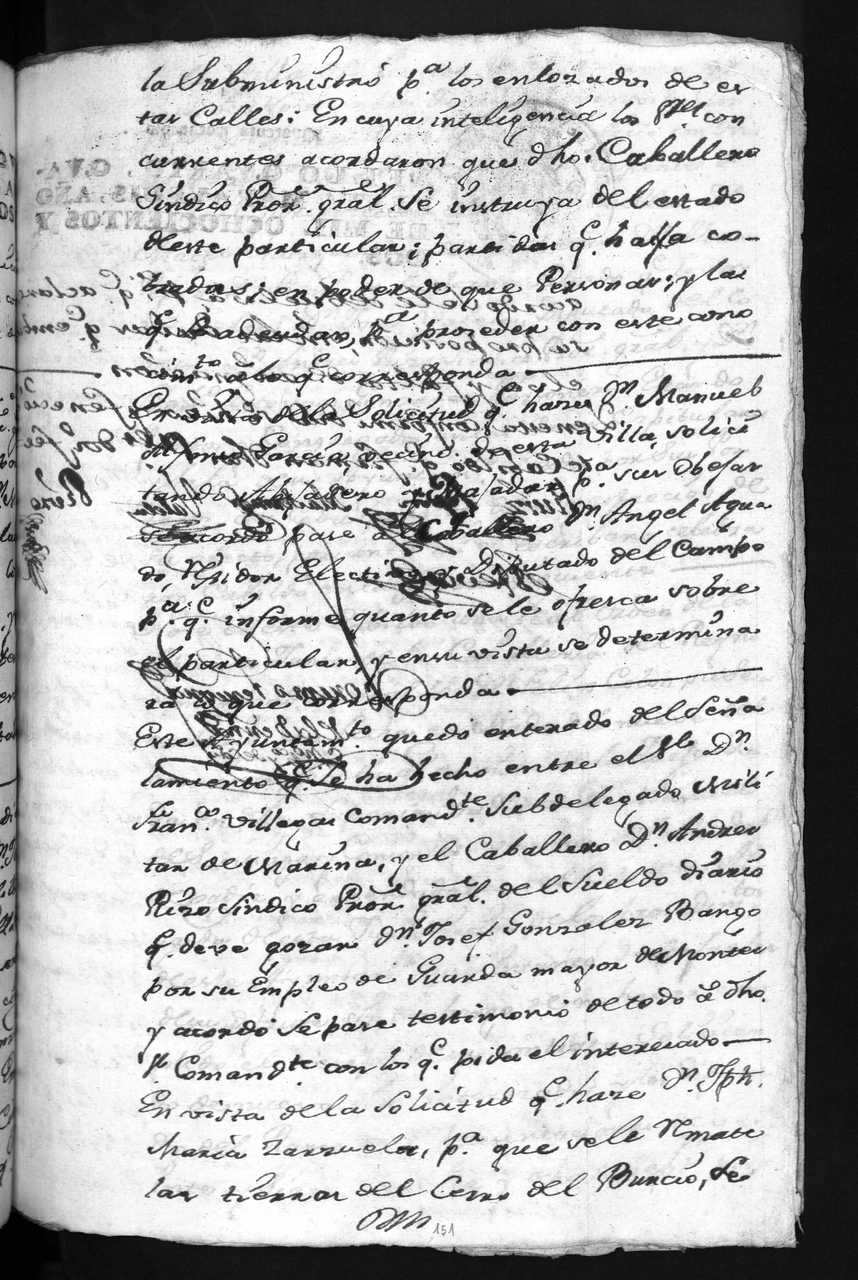 la Subministró p.ª los enlozados de es
tas Calles: En cuya inteligencia los Sres con
currentes acordaron que dho. Caballero
Sindico Pror. gral. se instruya del estado
deste particular; partidas q.e haya co-
bradas; en poder de que Personas; y las
q.e se adeudan, p.ª prozeder con este cono
cim.to a lo q.e corresponda
En vista de la Solicitud q.e haze D.n Manuel
Garcia vecino de esta Villa, solici
tando p.ª sus Obejas
se acordó pase al Caballero D.n Angel Agua
do, Rejidor Electivo y Diputado del Campo
p.ª q.e informe quanto se le ofresca sobre
el particular, y en su vista se determina
ra lo que corresponda
Este Ayuntam.to quedó enterado del Seña
lamiento q.e se ha hecho entre el Sr. D.n
Fran.co Villegas Comand.te Subdelegado Mili
tar de Marina, y el Caballero D.n Andres
Rizo Sindico Pror. gral. del Sueldo diario
q.e deve gozar D.n Josef Gonzalez Bango
por su Empleo de Guarda mayor de Montes
y acordó se pase testimonio de todo a dho.
Sr. Comand.te con los q.e pida el interesado
En vista de la solicitud q.e haze D.n Jph.
Maria Zarzuela, p.ª que se le Rmate
las tierras del Cerro del Buncio, se
151